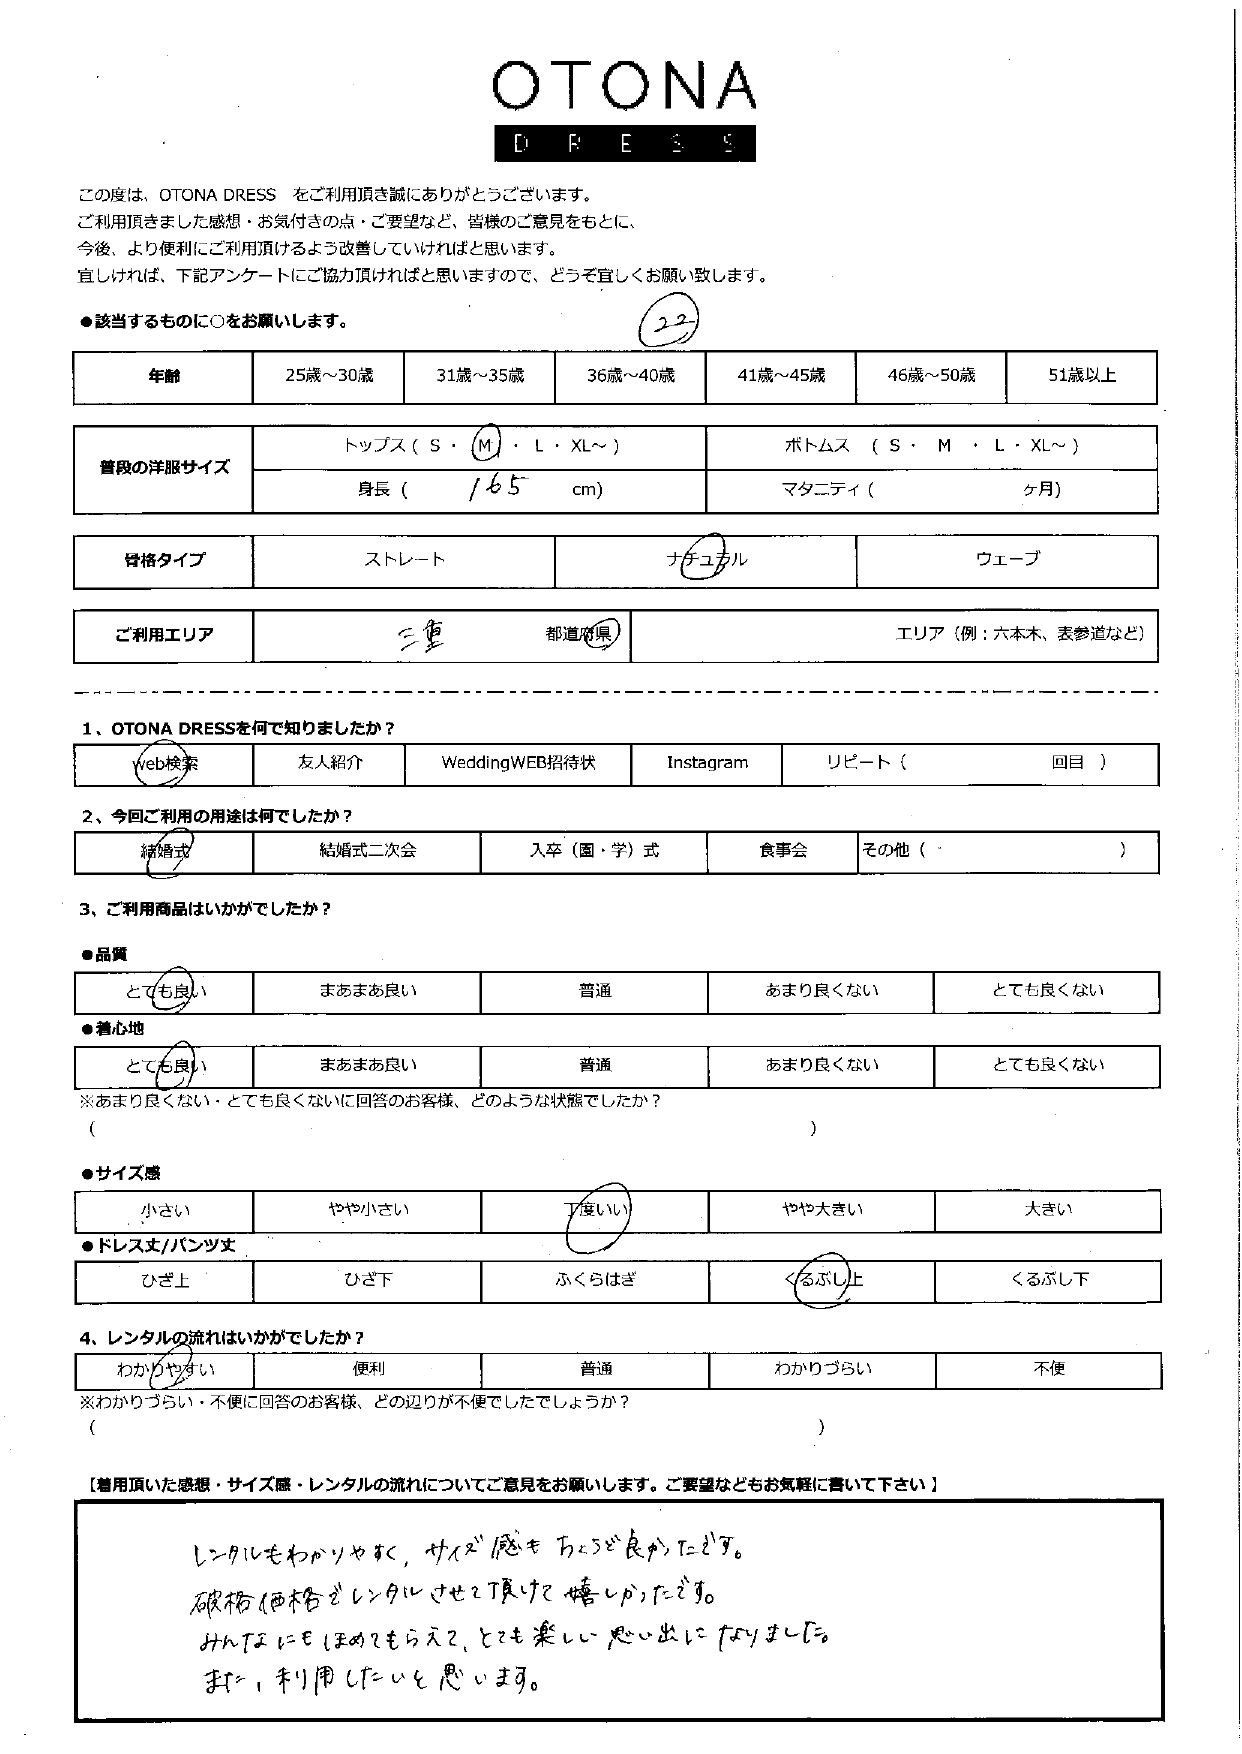 OTONA
DRESS
この度は、OTONA DRESS　をご利用頂き誠にありがとうございます。
ご利用頂きました感想・お気付きの点・ご要望など、皆様のご意見をもとに、
今後、より便利にご利用頂けるよう改善していければと思います。
宜しければ、下記アンケートにご協力頂ければと思いますので、どうぞ宜しくお願い致します。
●該当するものに○をお願いします。
22
年齢 25歳～30歳 31歳～35歳 36歳～40歳 41歳～45歳 46歳～50歳 51歳以上
普段の洋服サイズ トップス ( S ・ M ・ L ・ XL～ ) ボトムス ( S ・ M ・ L ・ XL～ )
身長 ( 165 cm) マタニティ ( ヶ月)
骨格タイプ ストレート ナチュラル ウェーブ
ご利用エリア 三重 都道府県 エリア（例：六本木、表参道など）
1、OTONA DRESSを何で知りましたか？
web検索 友人紹介 WeddingWEB招待状 Instagram リピート（ 回目 ）
2、今回ご利用の用途は何でしたか？
結婚式 結婚式二次会 入卒（園・学）式 食事会 その他（ ）
3、ご利用商品はいかがでしたか？
●品質
とても良い まあまあ良い 普通 あまり良くない とても良くない
●着心地
とても良い まあまあ良い 普通 あまり良くない とても良くない
※あまり良くない・とても良くないに回答のお客様、どのような状態でしたか？
（ ）
●サイズ感
小さい やや小さい 丁度いい やや大きい 大きい
●ドレス丈/パンツ丈
ひざ上 ひざ下 ふくらはぎ くるぶし上 くるぶし下
4、レンタルの流れはいかがでしたか？
わかりやすい 便利 普通 わかりづらい 不便
※わかりづらい・不便に回答のお客様、どの辺りが不便でしたでしょうか？
（ ）
【着用頂いた感想・サイズ感・レンタルの流れについてご意見をお願いします。ご要望などもお気軽に書いて下さい】
レンタルもわかりやすく、サイズ感もちょうど良かったです。
破格価格でレンタルさせて頂けて嬉しかったです。
みんなにもほめてもらえて、とても楽しい思い出になりました。
また、利用したいと思います。